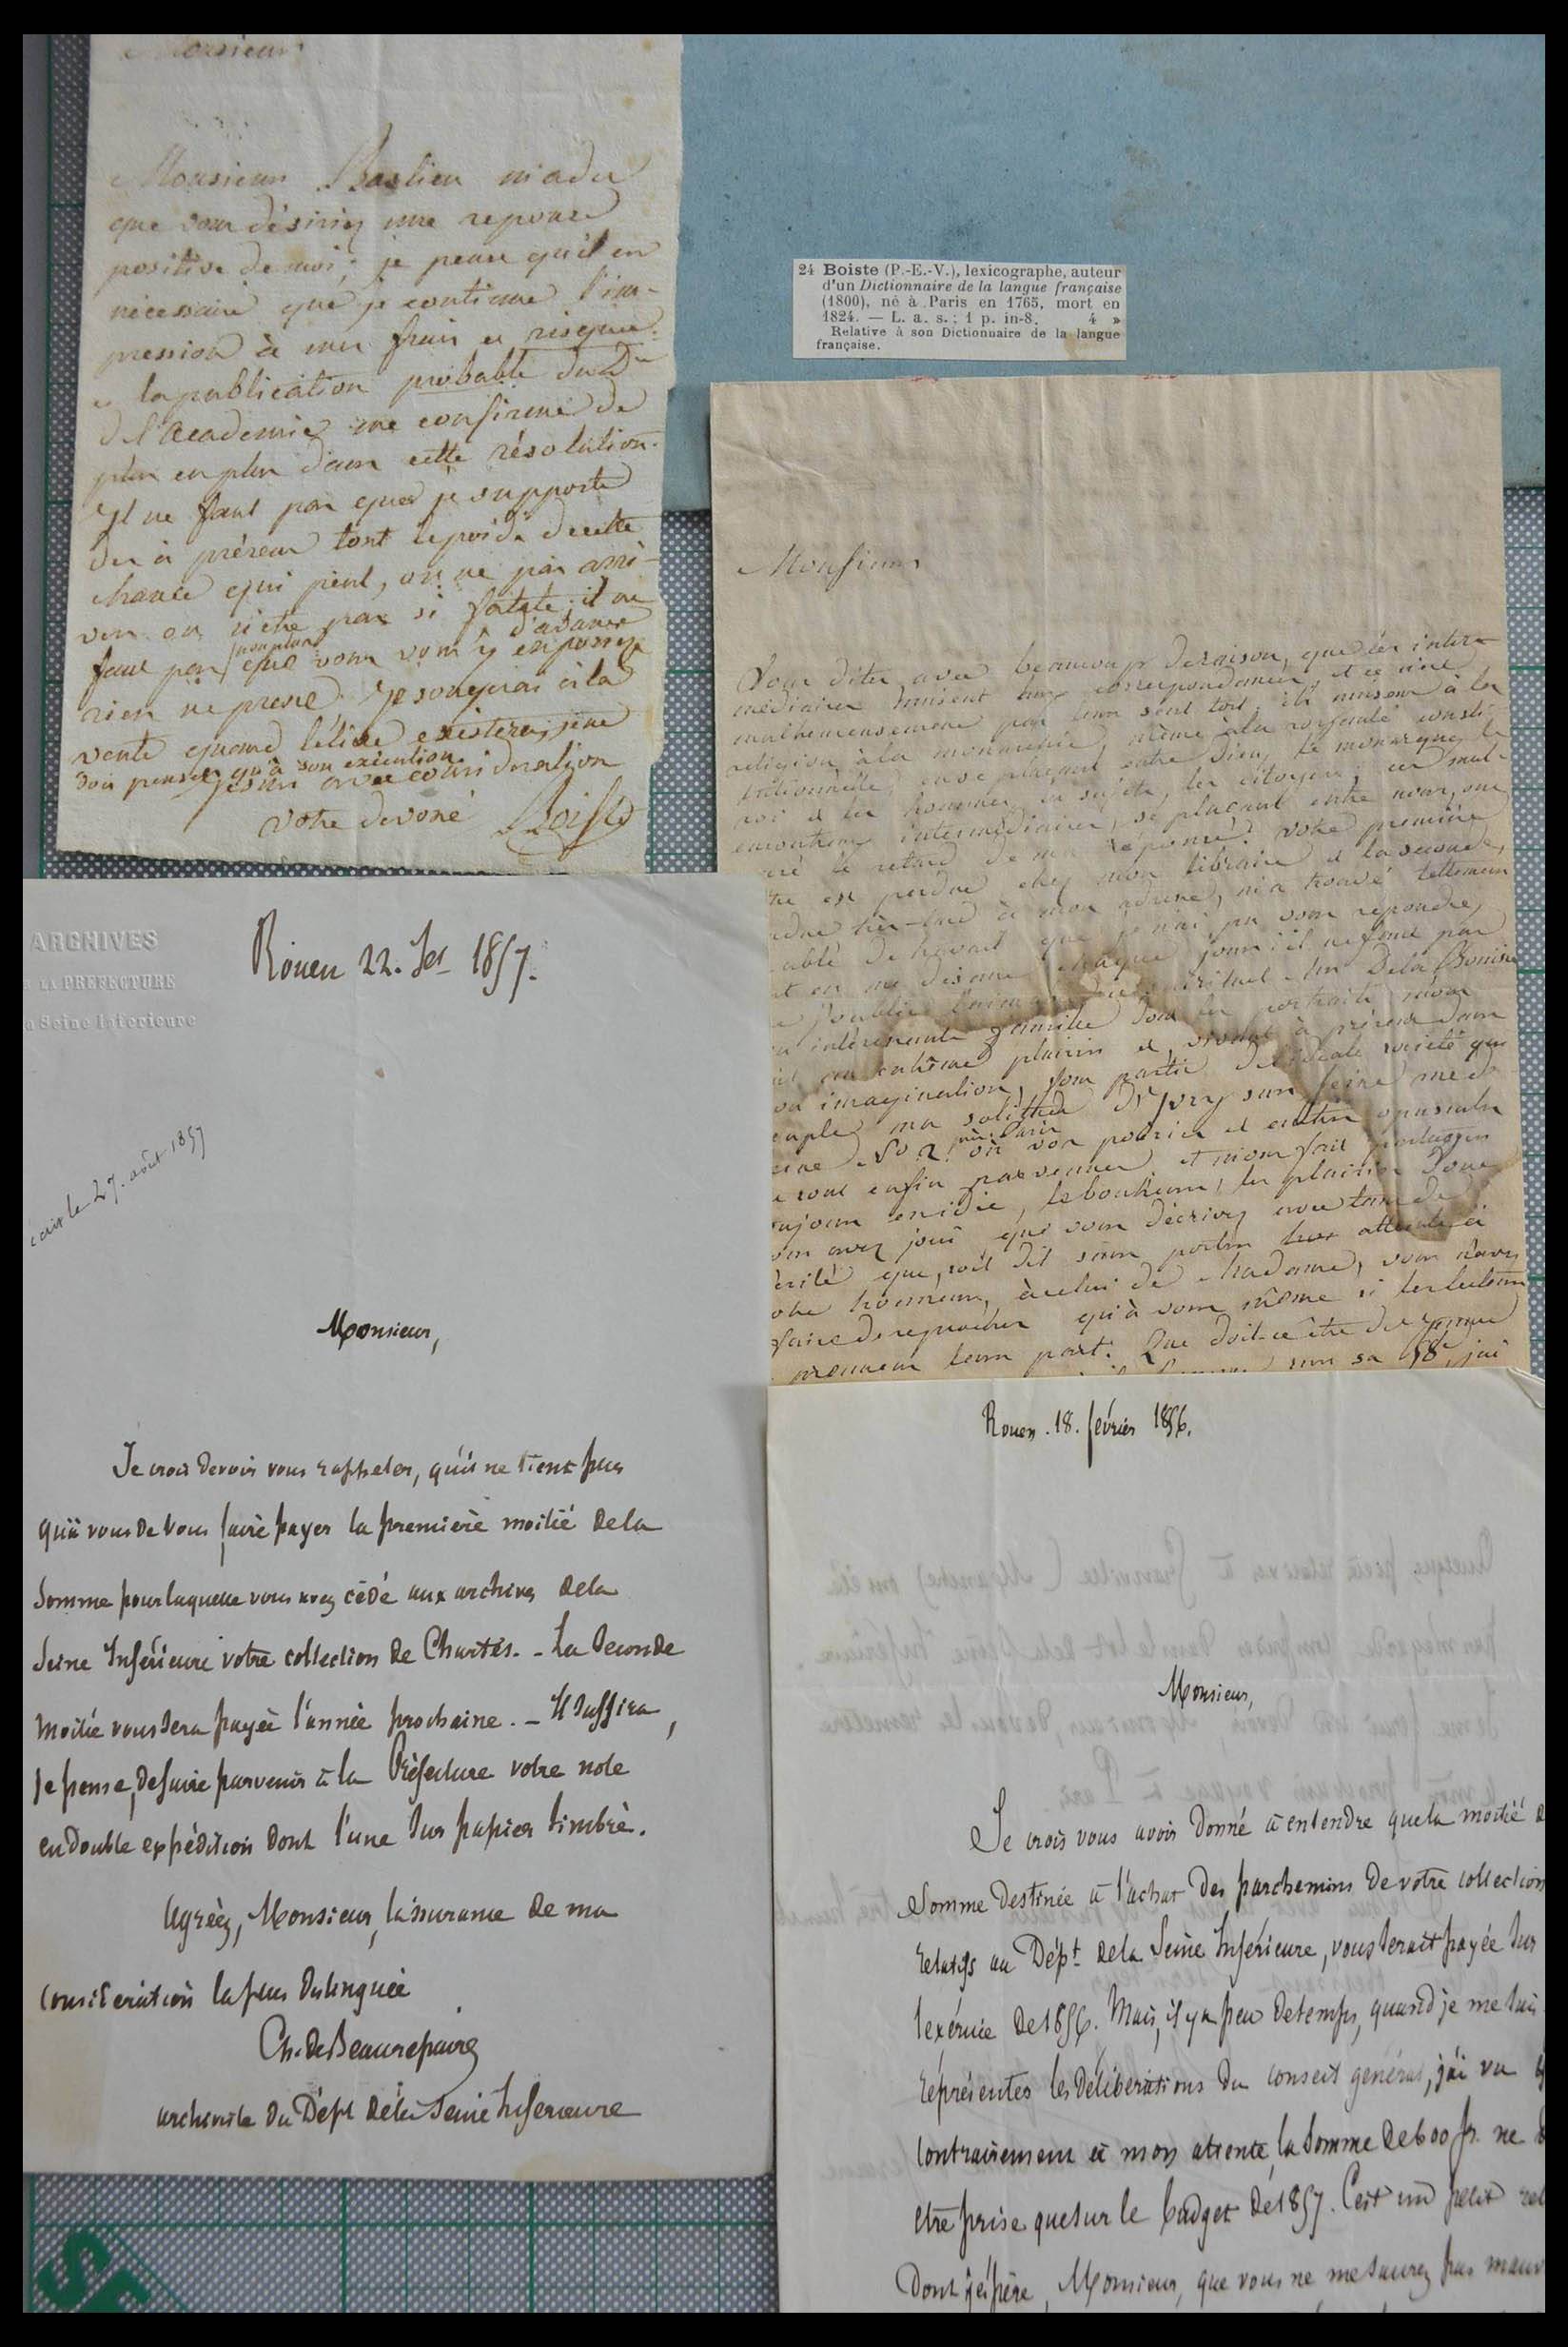 Monsieur
Monsieur Bastien m'a dit
que vous désiriez une reponse
positive de moi; je pense qu'il est
nécessaire que je continue l'im-
pression à mes frais et risques.
et la publication probable du Dre
de l'Academie me confirme de
plus en plus dans cette résolution.
Il ne faut pas que je supporte
dès à présent tout le poids de cette
chance qui peut, ou ne pas arri-
ver ou n'etre pas si fatale; il ne
faut pas non plus que vous vous y exposiez d'avance
rien ne presse. Je songerai à la
vente quand le livre existera, je ne
dois penser qu'à son exécution.
Je suis avec considération
votre devoué Boiste
24 Boiste (P.-E.-V.), lexicographe, auteur
d'un Dictionnaire de la langue française
(1800), né à Paris en 1765, mort en
1824. — L. a. s.; 1 p. in-8. 4 »
Relative à son Dictionnaire de la langue
française.
Monsieur
Vous dites avec beaucoup de raison, que les inter-
médiaires nuisent aux correspondances, et ce n'est
malheureusement pas leur seul tort. ils nuisent à la
religion, à la monarchie, même à la royauté consti-
tutionnelle, en se plaçant entre Dieu, le monarque, le
roi et les hommes, les sujets, les citoyens; ces mal-
encontreux intermédiaires, se plaçant entre nous, ont
le retard de ma réponse. votre première
est perdue chez mon libraire et la seconde,
très-tard à mon adresse, m'a trouvé tellement
de travail que je n'ai pu vous repondre,
en me disant chaque jour: il ne faut pas
j'oublie De la Bouisse
intéressante famille dont les portraits
même plaisir et, vivant à présent dans
imagination, font partie de l'idéale société qui
ma solitude d'Ivry sur Seine près Paris
où vos poésies et autres opuscules
sont enfin parvenues et m'ont fait partager
envie, le bonheur, les plaisirs dont
avez joui que vous décrivez avec tant de
que, soit dit sans porter atteinte à
honneur, à celui de Madame, vous n'avez
faire de reproches qu'à vous même si les lecteurs
prennent leur part. Que doit-ce être de
sur sa j'ai
ARCHIVES
DE LA PREFECTURE
de la Seine Inferieure
Rouen 22. Jet 1857.
écrit le 27. août 1857
Monsieur,
Je crois devoir vous rappeler, qu'il ne tient plus
qu'à vous de vous faire payer la première moitié de la
Somme pour laquelle vous avez cédé aux archives de la
Seine Inférieure votre collection de Chartes. – La Seconde
moitié vous sera payée l'année prochaine. – Il suffira,
je pense, de faire parvenir à la Préfecture votre note
en double expédition dont l'une sur papier timbré.
Agréez, Monsieur, l'assurance de ma
consideration la plus distinguée
Ch. de Beaurepaire
archiviste du Dépt de la Seine Inferieure
Rouen. 18. février 1856.
Monsieur,
Je crois vous avoir donné à entendre que la moitié d
Somme destinée à l'achat des parchemins de votre collection
relatifs au Dépt de la Seine Inférieure, vous serait payée sur
l'exercice de 1856. Mais, il y a peu de temps, quand je me suis
représenter les délibérations du conseil general, j'ai vu
contrairement à mon attente, la somme de 600 fr. ne
etre prise que sur le budget de 1857. C'est un petit
Dont j'espère, Monsieur, que vous ne me saurez pas mauv